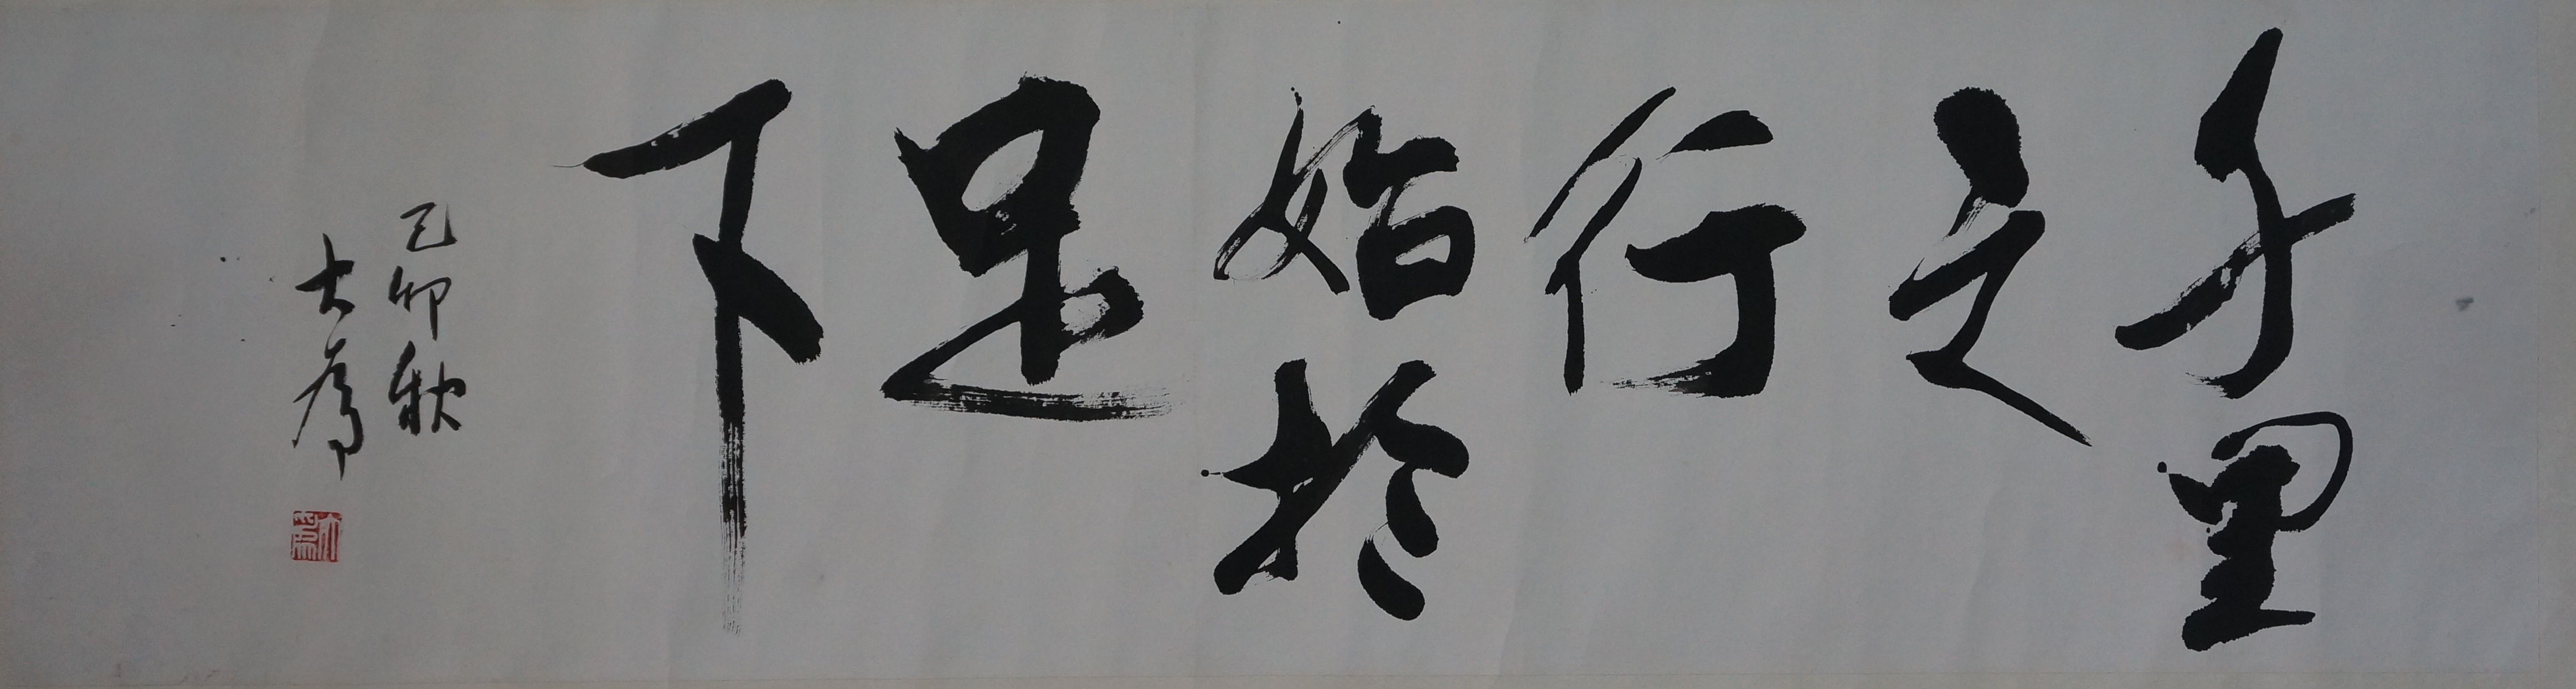 千里
之
行
始於
足
下
己卯秋
大為